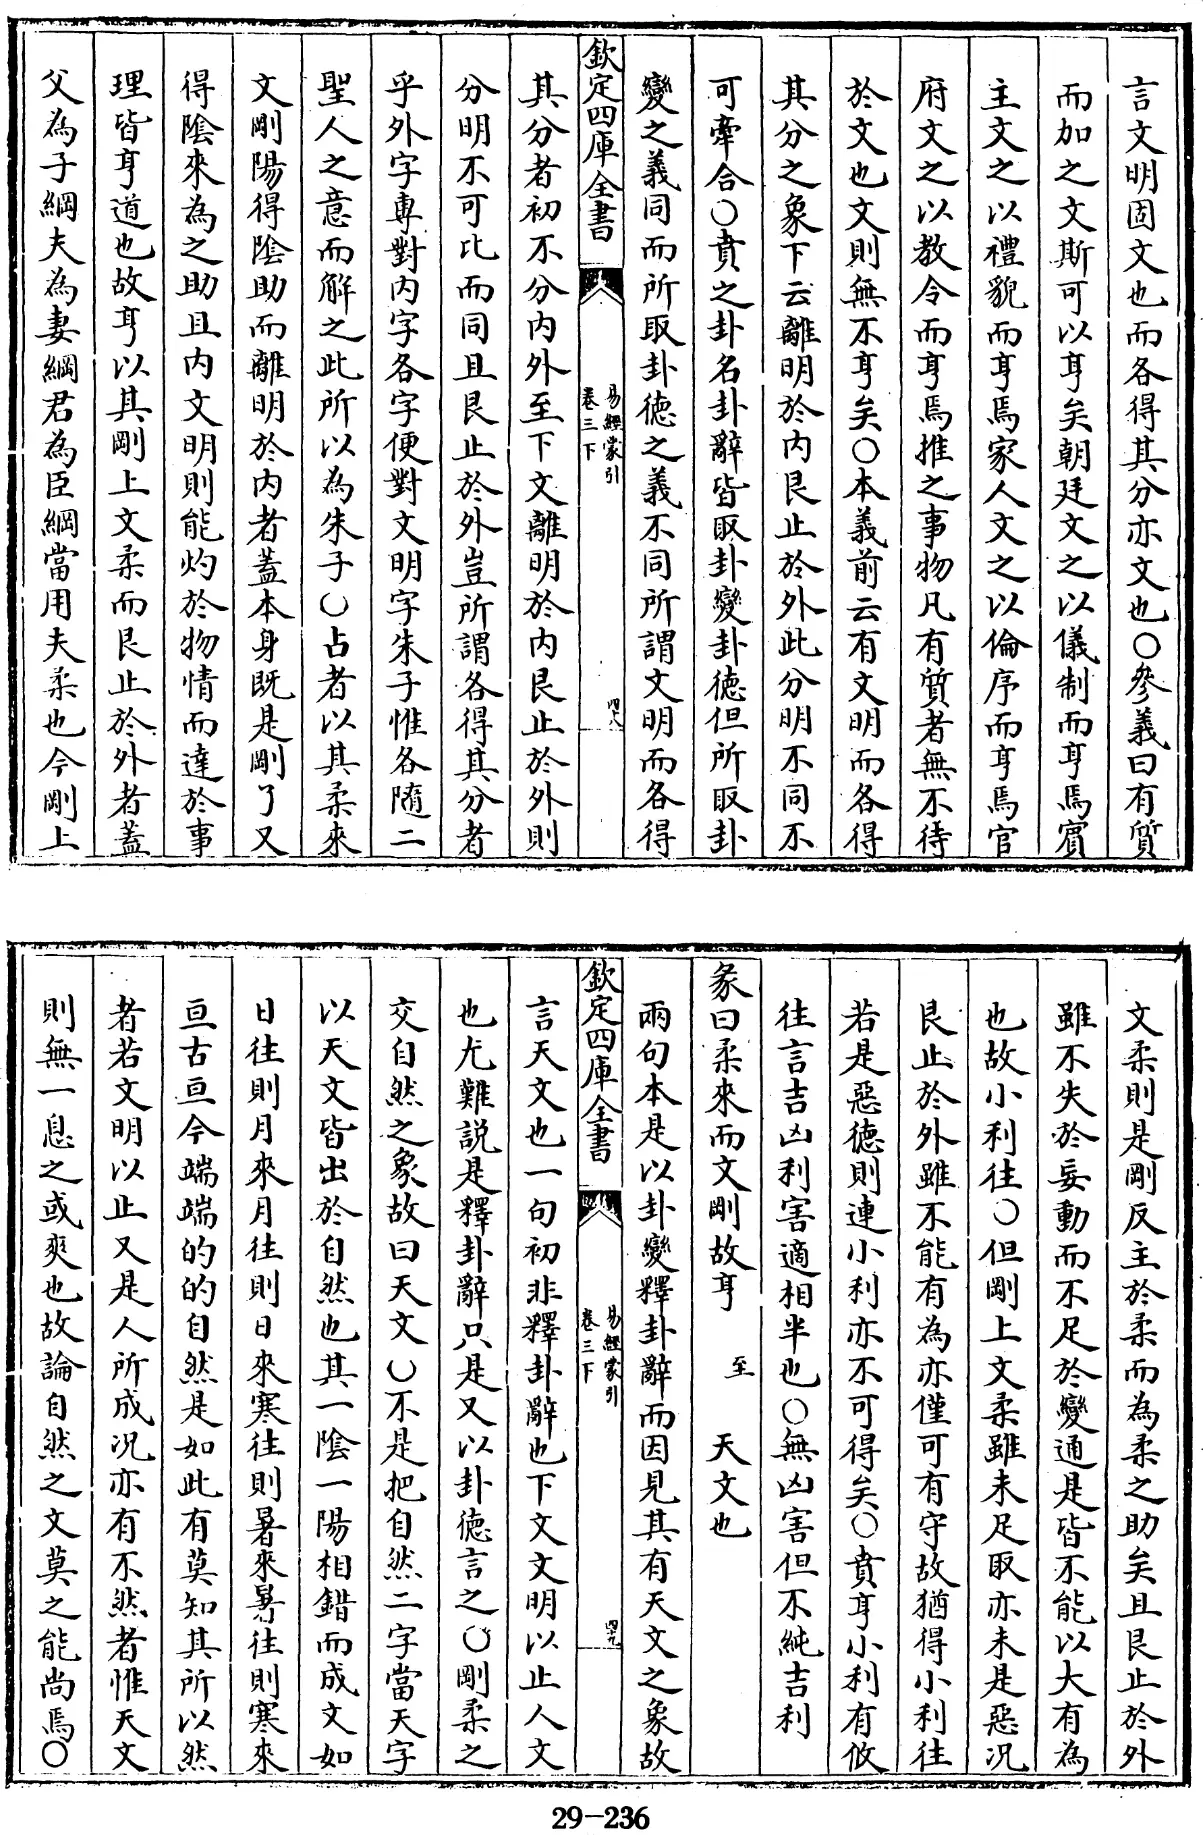 言文明固文也而各得其分亦文也○參義曰有質
而加之文斯可以亨矣朝廷文之以儀制而亨焉賓
主文之以禮貌而亨焉家人文之以倫序而亨焉官
府文之以教令而亨焉推之事物凡有質者無不待
於文也文則無不亨矣○本義前云有文明而各得
其分之象下云離明於内艮止於外此分明不同不
可牽合○賁之卦名卦辭皆取卦變卦徳但所取卦
變之義同而所取卦徳之義不同所謂文明而各得
欽定四庫全書
易經蒙引
卷三下
四八
其分者初不分内外至下文離明於内艮止於外則
分明不可比而同且艮止於外豈所謂各得其分者
乎外字專對内字各字便對文明字朱子惟各隨二
聖人之意而解之此所以為朱子○占者以其柔來
文剛陽得陰助而離明於内者蓋本身既是剛了又
得陰來為之助且内文明則能灼於物情而達於事
理皆亨道也故亨以其剛上文柔而艮止於外者蓋
父為子綱夫為妻綱君為臣綱當用夫柔也今剛上
文柔則是剛反主於柔而為柔之助矣且艮止於外
雖不失於妄動而不足於變通是皆不能以大有為
也故小利往○但剛上文柔雖未足取亦未是惡况
艮止於外雖不能有為亦僅可有守故猶得小利往
若是惡徳則連小利亦不可得矣○賁亨小利有攸
往言吉凶利害適相半也○無凶害但不純吉利
彖曰柔來而文剛故亨 至 天文也
兩句本是以卦變釋卦辭而因見其有天文之象故
欽定四庫全書
易經蒙引
卷三下
四九
言天文也一句初非釋卦辭也下文文明以止人文
也尤難説是釋卦辭只是又以卦徳言之○剛柔之
交自然之象故曰天文○不是把自然二字當天字
以天文皆出於自然也其一陰一陽相錯而成文如
日往則月來月往則日來寒往則暑來暑往則寒來
亘古亘今端端的的自然是如此有莫知其所以然
者若文明以止又是人所成况亦有不然者惟天文
則無一息之或爽也故論自然之文莫之能尚焉○
29-236